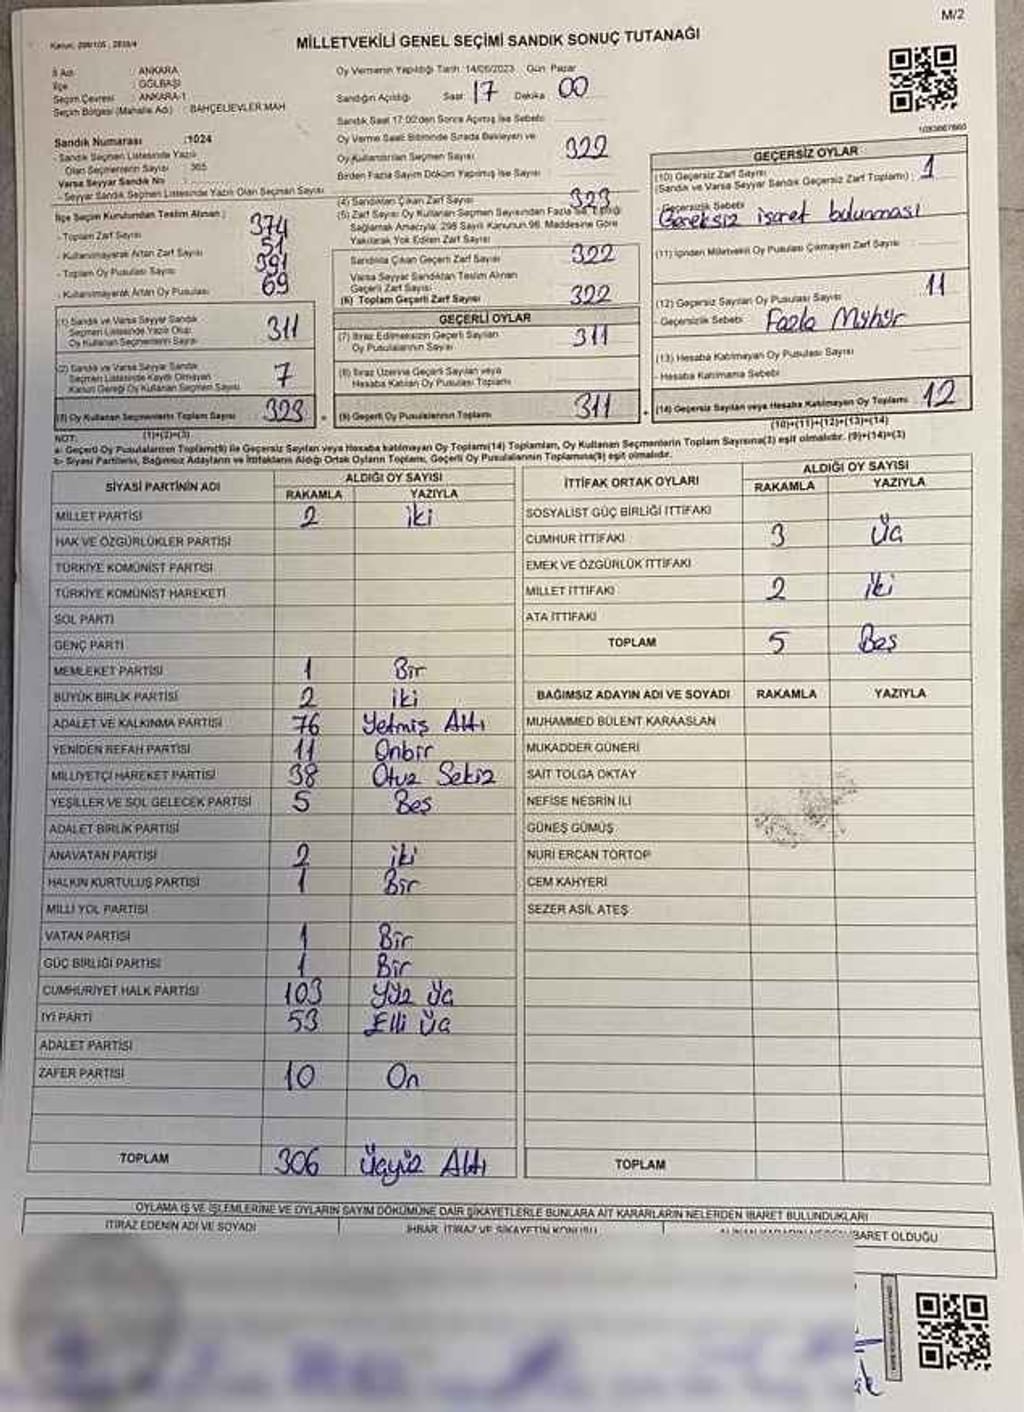 M/2
MİLLETVEKİLİ GENEL SEÇİMİ SANDIK SONUÇ TUTANAĞI
İl Adı : ANKARA
İlçe : GÖLBAŞI
Seçim Çevresi : ANKARA-1
Seçim Bölgesi (Mahalle Adı) : BAHÇELİEVLER MAH
Sandık Numarası : 1024
- Sandık Seçmen Listesinde Yazılı
Olan Seçmenlerin Sayısı : 365
Varsa Seyyar Sandık No :
- Seyyar Sandık Seçmen Listesinde Yazılı Olan Seçmen Sayısı :
İlçe Seçim Kurulundan Teslim Alınan :
- Toplam Zarf Sayısı 374
- Kullanılmayarak Artan Zarf Sayısı 51
- Toplam Oy Pusulası Sayısı 391
- Kullanılmayarak Artan Oy Pusulası 69
(1) Sandık ve Varsa Seyyar Sandık
Seçmen Listesinde Yazılı Olup
Oy Kullanan Seçmenlerin Sayısı 311
(2) Sandık ve Varsa Seyyar Sandık
Seçmen Listesinde Kayıtlı Olmayan
Kanun Gereği Oy Kullanan Seçmen Sayısı 7
(3) Oy Kullanan Seçmenlerin Toplam Sayısı 323
(1)+(2)=(3)
Oy Vermenin Yapıldığı Tarih :14/05/2023 Gün: Pazar
Sandığın Açıldığı Saat 17 Dakika 00
Sandık Saat 17:00'den Sonra Açılmış İse Sebebi:
Oy Verme Saati Bitiminde Sırada Bekleyen ve
Oy Kullandırılan Seçmen Sayısı 322
Birden Fazla Sayım Döküm Yapılmış İse Sayısı
(4) Sandıktan Çıkan Zarf Sayısı 323
(5) Zarf Sayısı Oy Kullanan Seçmen Sayısından Fazla ise, Eşitliği
Sağlamak Amacıyla, 298 Sayılı Kanunun 98. Maddesine Göre
Yakılarak Yok Edilen Zarf Sayısı
Sandıkta Çıkan Geçerli Zarf Sayısı 322
Varsa Seyyar Sandıktan Teslim Alınan
Geçerli Zarf Sayısı
(6) Toplam Geçerli Zarf Sayısı 322
GEÇERLİ OYLAR
(7) İtiraz Edilmeksizin Geçerli Sayılan
Oy Pusulalarının Sayısı 311
(8) İtiraz Üzerine Geçerli Sayılan veya
Hesaba Katılan Oy Pusulası Toplamı
(9) Geçerli Oy Pusulalarının Toplamı 311
GEÇERSİZ OYLAR
(10) Geçersiz Zarf Sayısı
(Sandık ve Varsa Seyyar Sandık Geçersiz Zarf Toplamı) : 1
- Geçersizlik Sebebi
Gereksiz işaret bulunması
(11) İçinden Milletvekili Oy Pusulası Çıkmayan Zarf Sayısı
(12) Geçersiz Sayılan Oy Pusulası Sayısı 11
- Geçersizlik Sebebi Fazla Mühür
(13) Hesaba Katılmayan Oy Pusulası Sayısı
- Hesaba Katılmama Sebebi
(14) Geçersiz Sayılan veya Hesaba Katılmayan Oy Toplamı 12
(10)+(11)+(12)+(13)=(14)
NOT:
a- Geçerli Oy Pusulalarının Toplamı(9) ile Geçersiz Sayılan veya Hesaba katılmayan Oy Toplamı(14) Toplamları, Oy Kullanan Seçmenlerin Toplam Sayısına(3) eşit olmalıdır. (9)+(14)=(3)
b- Siyasi Partilerin, Bağımsız Adayların ve İttifakların Aldığı Ortak Oyların Toplamı, Geçerli Oy Pusulalarının Toplamına(9) eşit olmalıdır.
SİYASİ PARTİNİN ADI ALDIĞI OY SAYISI
RAKAMLA YAZIYLA
MİLLET PARTİSİ 2 iki
HAK VE ÖZGÜRLÜKLER PARTİSİ
TÜRKİYE KOMÜNİST PARTİSİ
TÜRKİYE KOMÜNİST HAREKETİ
SOL PARTİ
GENÇ PARTİ
MEMLEKET PARTİSİ 1 Bir
BÜYÜK BİRLİK PARTİSİ 2 iki
ADALET VE KALKINMA PARTİSİ 76 Yetmiş Altı
YENİDEN REFAH PARTİSİ 11 Onbir
MİLLİYETÇİ HAREKET PARTİSİ 38 Otuz Sekiz
YEŞİLLER VE SOL GELECEK PARTİSİ 5 Beş
ADALET BİRLİK PARTİSİ
ANAVATAN PARTİSİ 2 iki
HALKIN KURTULUŞ PARTİSİ 1 Bir
MİLLİ YOL PARTİSİ
VATAN PARTİSİ 1 Bir
GÜÇ BİRLİĞİ PARTİSİ 1 Bir
CUMHURİYET HALK PARTİSİ 103 Yüz Üç
İYİ PARTİ 53 Elli Üç
ADALET PARTİSİ
ZAFER PARTİSİ 10 On
TOPLAM 306 Üçyüz Altı
İTTİFAK ORTAK OYLARI ALDIĞI OY SAYISI
RAKAMLA YAZIYLA
SOSYALİST GÜÇ BİRLİĞİ İTTİFAKI
CUMHUR İTTİFAKI 3 Üç
EMEK VE ÖZGÜRLÜK İTTİFAKI
MİLLET İTTİFAKI 2 iki
ATA İTTİFAKI
TOPLAM 5 Beş
BAĞIMSIZ ADAYIN ADI VE SOYADI RAKAMLA YAZIYLA
MUHAMMED BÜLENT KARAASLAN
MUKADDER GÜNERİ
SAİT TOLGA OKTAY
NEFİSE NESRİN İLİ
GÜNEŞ GÜMÜŞ
NURİ ERCAN TORTOP
CEM KAHYERİ
SEZER ASİL ATEŞ
TOPLAM
OYLAMA İŞ VE İŞLEMLERİNE VE OYLARIN SAYIM DÖKÜMÜNE DAİR ŞİKAYETLERLE BUNLARA AİT KARARLARIN NELERDEN İBARET BULUNDUKLARI
İTİRAZ EDENİN ADI VE SOYADI İHBAR, İTİRAZ VE ŞİKAYETİN KONUSU ALINAN KARARIN NEDEN İBARET OLDUĞU